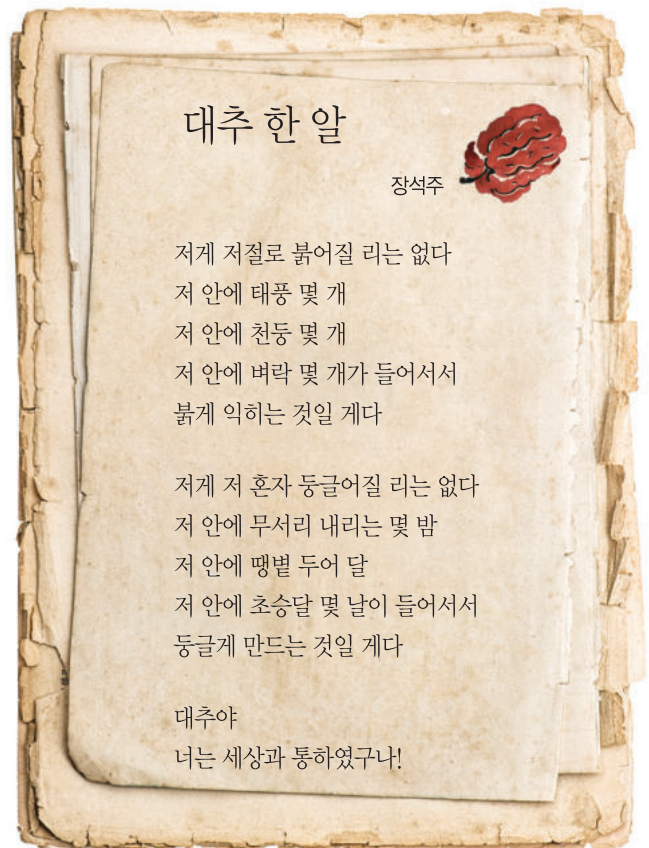 대추 한 알
장석주
저게 저절로 붉어질 리는 없다
저 안에 태풍 몇 개
저 안에 천둥 몇 개
저 안에 벼락 몇 개가 들어서서
붉게 익히는 것일 게다
저게 저 혼자 둥글어질 리는 없다
저 안에 무서리 내리는 몇 밤
저 안에 땡볕 두어 달
저 안에 초승달 몇 날이 들어서서
둥글게 만드는 것일 게다
대추야
너는 세상과 통하였구나!